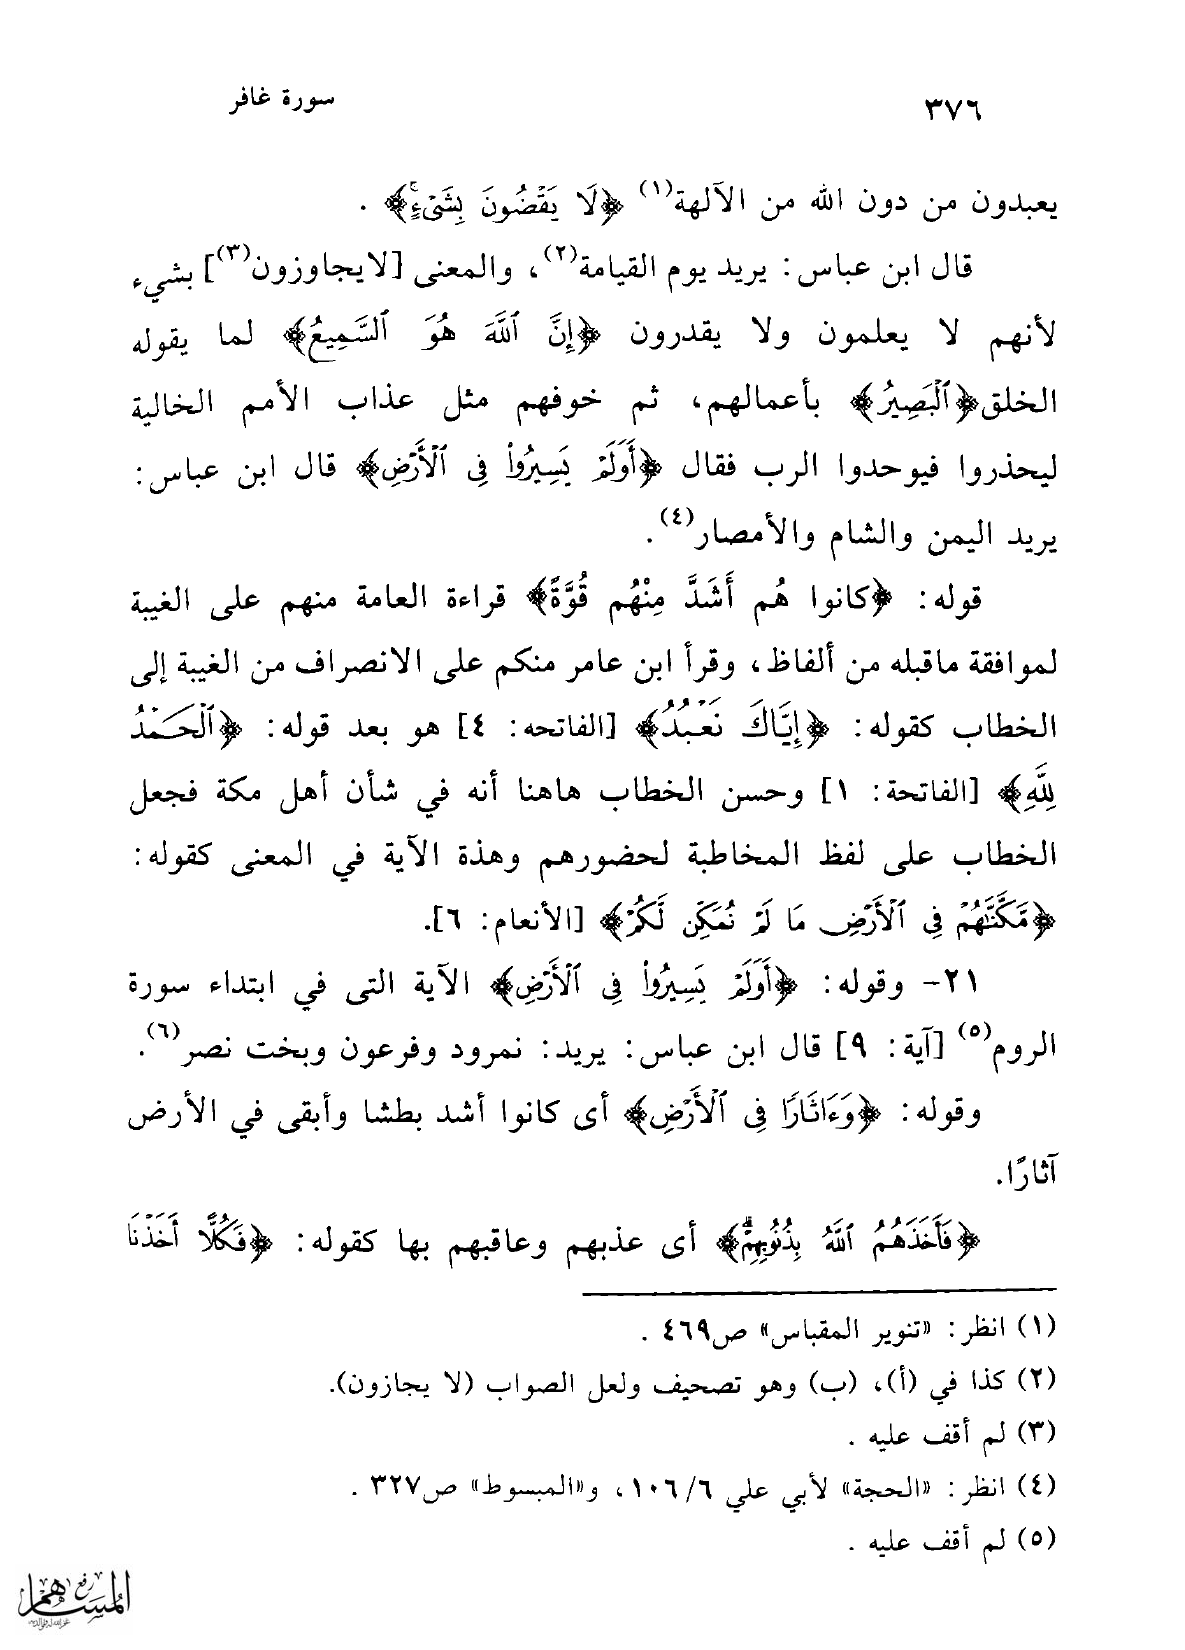 ٣٧٦
سورة غافر
يعبدون من دون الله من الآلهة(١) ﴿لَا يَقْضُونَ بِشَيْءٍ﴾ .
قال ابن عباس: يريد يوم القيامة(٢)، والمعنى [لايجاوزون(٣)] بشيء
لأنهم لا يعلمون ولا يقدرون ﴿إِنَّ ٱللَّهَ هُوَ ٱلسَّمِيعُ﴾ لما يقوله
الخلق﴿ٱلْبَصِيرُ﴾ بأعمالهم، ثم خوفهم مثل عذاب الأمم الخالية
ليحذروا فيوحدوا الرب فقال ﴿أَوَلَمْ يَسِيرُوا۟ فِى ٱلْأَرْضِ﴾ قال ابن عباس:
يريد اليمن والشام والأمصار(٤).
قوله: ﴿كانوا هُم أَشَدَّ مِنْهُم قُوَّةً﴾ قراءة العامة منهم على الغيبة
لموافقة ماقبله من ألفاظ، وقرأ ابن عامر منكم على الانصراف من الغيبة إلى
الخطاب كقوله: ﴿إِيَّاكَ نَعْبُدُ﴾ [الفاتحه: ٤] هو بعد قوله: ﴿ٱلْحَمْدُ
لِلَّهِ﴾ [الفاتحة: ١] وحسن الخطاب هاهنا أنه في شأن أهل مكة فجعل
الخطاب على لفظ المخاطبة لحضورهم وهذة الآية في المعنى كقوله:
﴿مَّكَّنَّٰهُمْ فِى ٱلْأَرْضِ مَا لَمْ نُمَكِّن لَّكُمْ﴾ [الأنعام: ٦].
٢١- وقوله: ﴿أَوَلَمْ يَسِيرُوا۟ فِى ٱلْأَرْضِ﴾ الآية التى في ابتداء سورة
الروم(٥) [آية: ٩] قال ابن عباس: يريد: نمرود وفرعون وبخت نصر(٦).
وقوله: ﴿وَءَاثَارًا فِى ٱلْأَرْضِ﴾ أى كانوا أشد بطشا وأبقى في الأرض
آثارًا.
﴿فَأَخَذَهُمُ ٱللَّهُ بِذُنُوبِهِمْ﴾ أى عذبهم وعاقبهم بها كقوله: ﴿فَكُلًّا أَخَذْنَا
(١) انظر: «تنوير المقباس» ص٤٦٩ .
(٢) كذا في (أ)، (ب) وهو تصحيف ولعل الصواب (لا يجازون).
(٣) لم أقف عليه .
(٤) انظر: «الحجة» لأبي علي ١٠٦/٦، و«المبسوط» ص٣٢٧ .
(٥) لم أقف عليه .